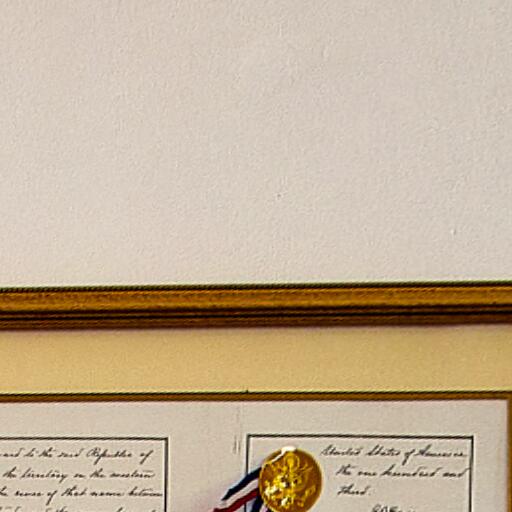 and to the said Republic of
the territory on the western
the river of that name between
United States of America
the one hundred and
third.